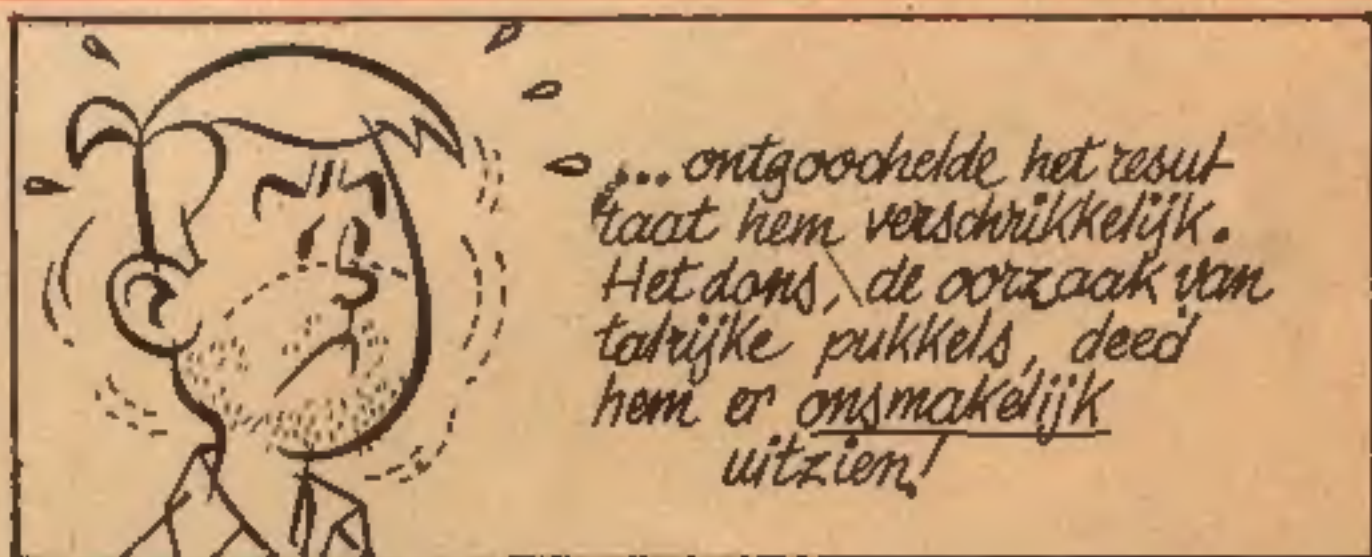 ... ontgoochelde het resul-
taat hem verschrikkelijk.
Het dons, de oorzaak van
talrijke pukkels, deed
hem er onsmakelijk
uitzien!